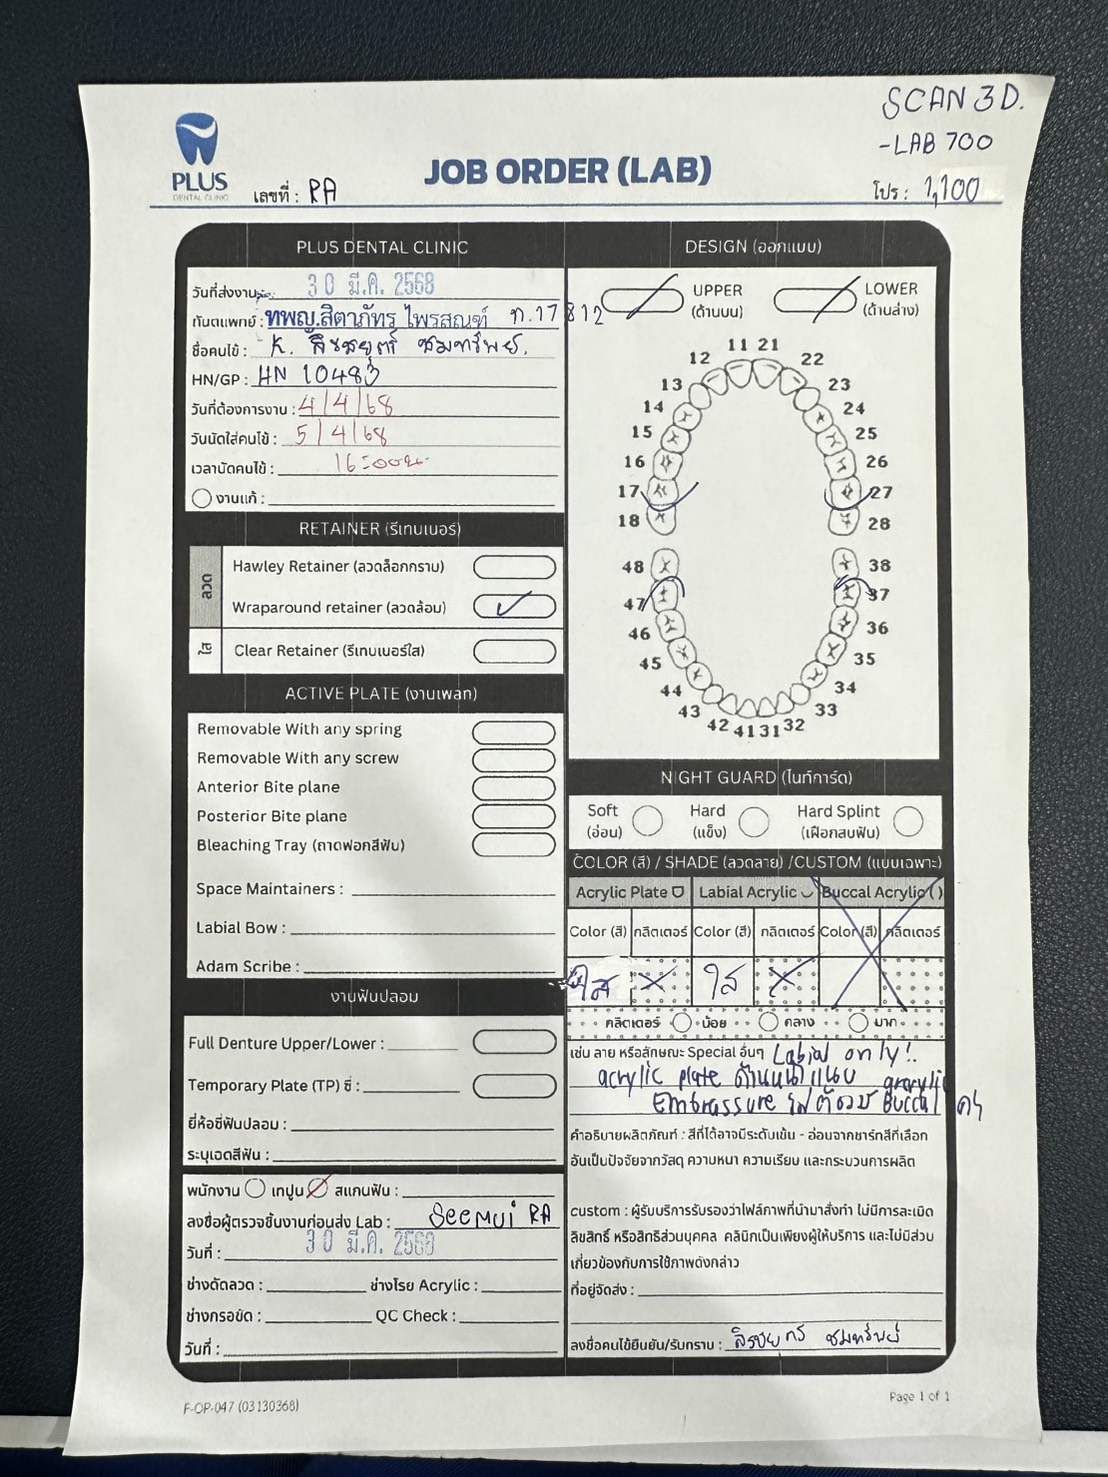 SCAN 3D.
-LAB 700
PLUS
DENTAL CLINIC
JOB ORDER (LAB)
เลขที่ : RA
โปร : 1,100
PLUS DENTAL CLINIC
วันที่ส่งงาน 30 มี.ค. 2568
ทันตแพทย์ : ทพญ.สิตาภัทร ไพรสณฑ์ ท.17812
ชื่อคนไข้ : K. ชมทรัพย์.
HN/GP : HN 10483
วันที่ต้องการงาน : 4/4/68
วันนัดใส่คนไข้ : 5/4/68
เวลานัดคนไข้ : 16:00น.
งานแก้ :
RETAINER (รีเทนเนอร์)
ลวด
Hawley Retainer (ลวดล็อกกราม)
Wraparound retainer (ลวดล้อม)
ใส
Clear Retainer (รีเทนเนอร์ใส)
ACTIVE PLATE (งานเพลท)
Removable With any spring
Removable With any screw
Anterior Bite plane
Posterior Bite plane
Bleaching Tray (ถาดฟอกสีฟัน)
Space Maintainers :
Labial Bow :
Adam Scribe :
งานฟันปลอม
Full Denture Upper/Lower :
Temporary Plate (TP) ซี่ :
ยี่ห้อซี่ฟันปลอม :
ระบุเฉดสีฟัน :
พนักงาน เทปูน สแกนฟัน :
ลงชื่อผู้ตรวจชิ้นงานก่อนส่ง Lab : Seemui RA
วันที่ : 30 มี.ค. 2568
ช่างดัดลวด : ช่างโรย Acrylic :
ช่างกรอขัด : QC Check :
วันที่ :
DESIGN (ออกแบบ)
UPPER
(ด้านบน)
LOWER
(ด้านล่าง)
11 21
12 22
13 23
14 24
15 25
16 26
17 27
18 28
48 38
47 37
46 36
45 35
44 34
43 33
42 41 31 32
NIGHT GUARD (ไนท์การ์ด)
Soft
(อ่อน)
Hard
(แข็ง)
Hard Splint
(เฝือกสบฟัน)
COLOR (สี) / SHADE (ลวดลาย) /CUSTOM (แบบเฉพาะ)
Acrylic Plate Labial Acrylic Buccal Acrylic ( )
Color (สี) กลิตเตอร์ Color (สี) กลิตเตอร์ Color (สี) กลิตเตอร์
ใส X ใส X
กลิตเตอร์ น้อย กลาง มาก
เช่น ลาย หรือลักษณะ Special อื่นๆ Labial only!.
acrylic plate ด้านหน้าแนบ
Embrassure Buccal
คำอธิบายผลิตภัณฑ์ : สีที่ได้อาจมีระดับเข้ม - อ่อนจากชาร์ทสีที่เลือก
อันเป็นปัจจัยจากวัสดุ ความหนา ความเรียบ และกระบวนการผลิต
custom : ผู้รับบริการรับรองว่าไฟล์ภาพที่นำมาสั่งทำ ไม่มีการละเมิด
ลิขสิทธิ์ หรือสิทธิส่วนบุคคล คลินิกเป็นเพียงผู้ให้บริการ และไม่มีส่วน
เกี่ยวข้องกับการใช้ภาพดังกล่าว
ที่อยู่จัดส่ง :
ลงชื่อคนไข้ยืนยัน/รับทราบ : ชมทรัพย์
F-OP-047 (03130368)
Page 1 of 1